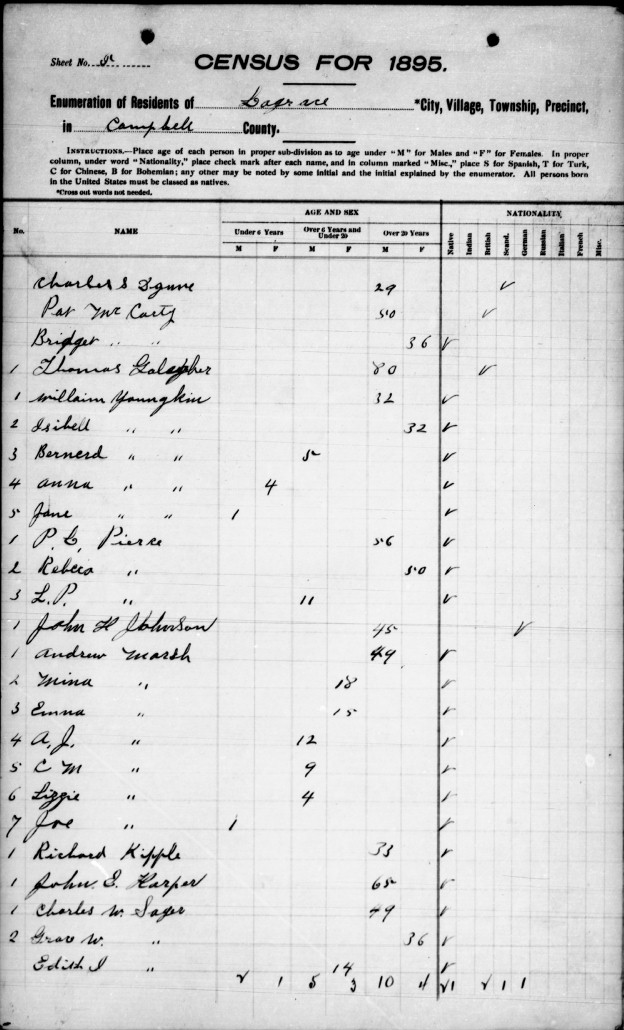 Sheet No.
CENSUS FOR 1895.
Enumeration of Residents of *City, Village, Township, Precinct,
in Campbell County.
INSTRUCTIONS.—Place age of each person in proper sub-division as to age under "M" for Males and "F" for Females. In proper
column, under word "Nationality," place check mark after each name, and in column marked "Misc.," place S for Spanish, T for Turk,
C for Chinese, B for Bohemian; any other may be noted by some initial and the initial explained by the enumerator. All persons born
in the United States must be classed as natives.
*Cross out words not needed.
AGE AND SEX NATIONALITY
No. NAME Under 6 Years Over 6 Years and Under 20 Over 20 Years Native Indian British Scand. German Russian Italian French Misc.
M F M F M F
Charles S 29 ✓
Pat Mc Carty 50 ✓
Bridget " " 36 ✓
1 Thomas 80 ✓
1 Willaim Youngkin 32 ✓
2 Isibell " " 32 ✓
3 Bernerd " " 5 ✓
4 Anna " " 4 ✓
5 Jane " " 1 ✓
1 P. L. Pierce 56 ✓
2 Rebeca " 50 ✓
3 L. P. " 11 ✓
1 John H Johnson 45 ✓
1 Andrew Marsh 49 ✓
2 Mina " 18 ✓
3 Emma " 15 ✓
4 A. J. " 12 ✓
5 C M " 9 ✓
6 Lizzie " 4 ✓
7 Joe " 1 ✓
1 Richard Kipple 33 ✓
1 John. E. Harper 65 ✓
1 Charles W. Sager 49 ✓
2 Grace W. " 36 ✓
Edith I " 14 ✓
2 1 5 3 10 4 21 2 1 1